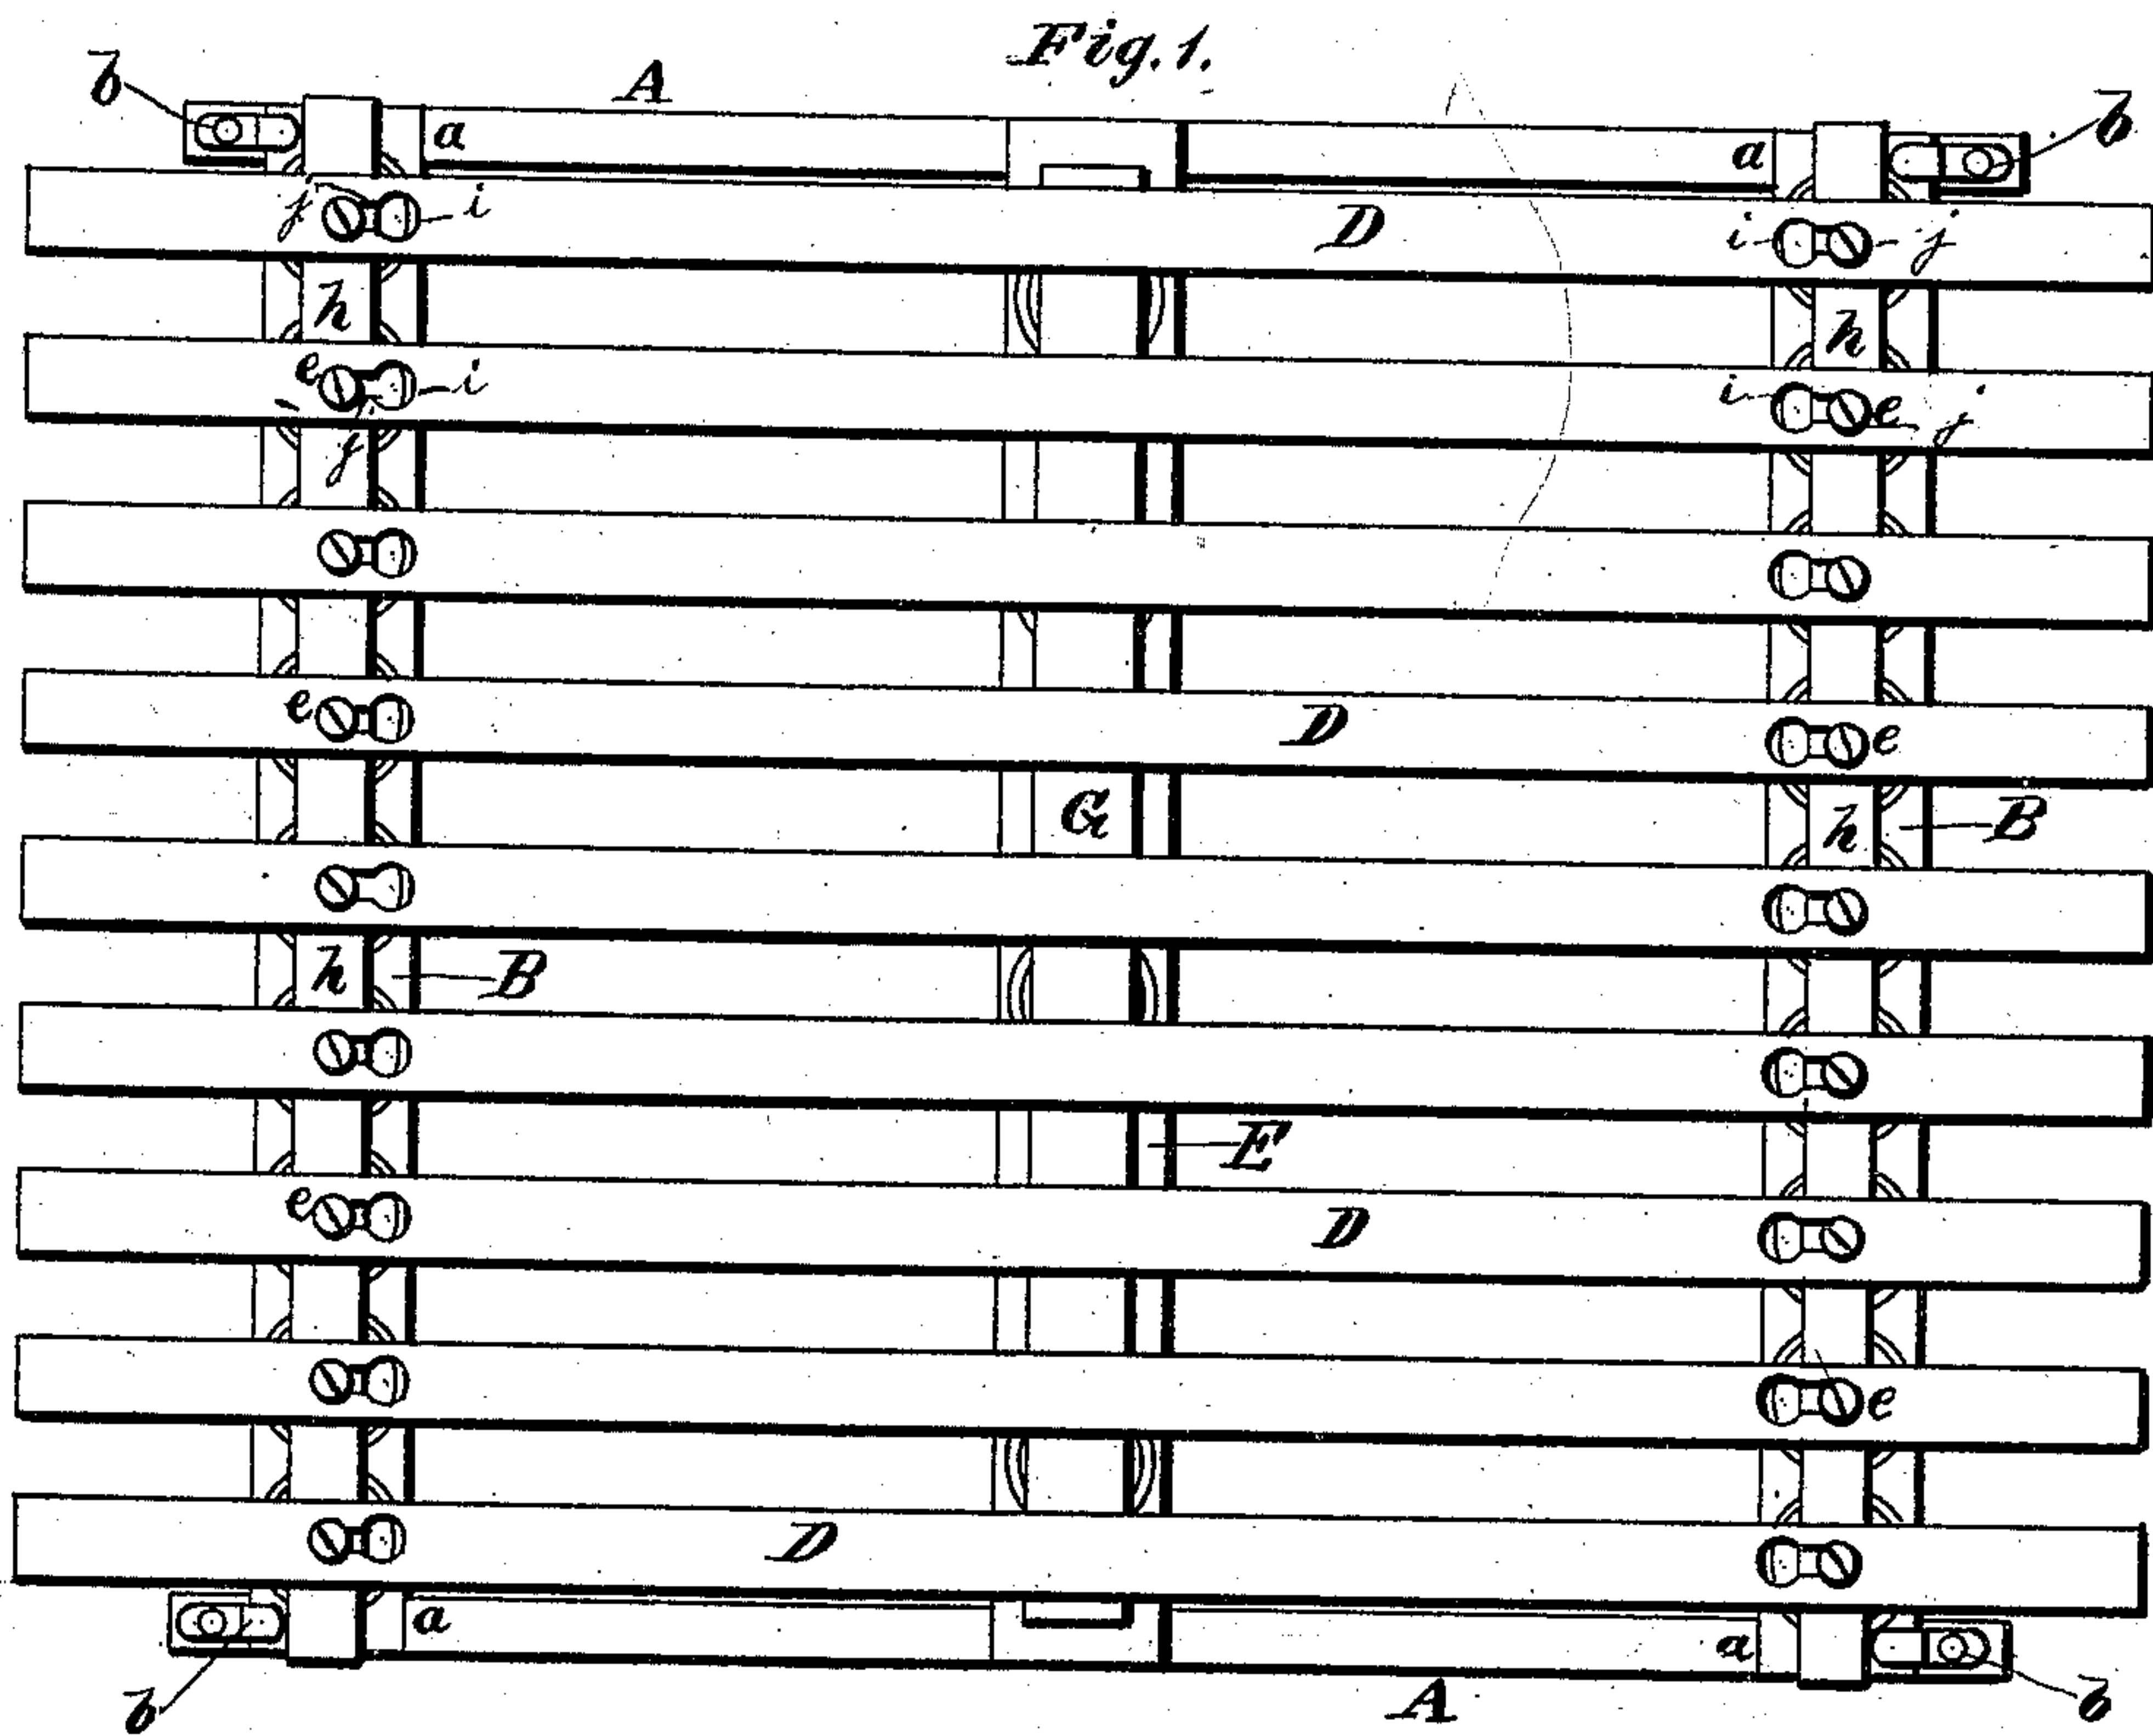 Fig. 1.
b A b
a a
j i D i j
h h
e i i e j
j
e D e
G h B
h B
E
e D
e
D
a a
b A b